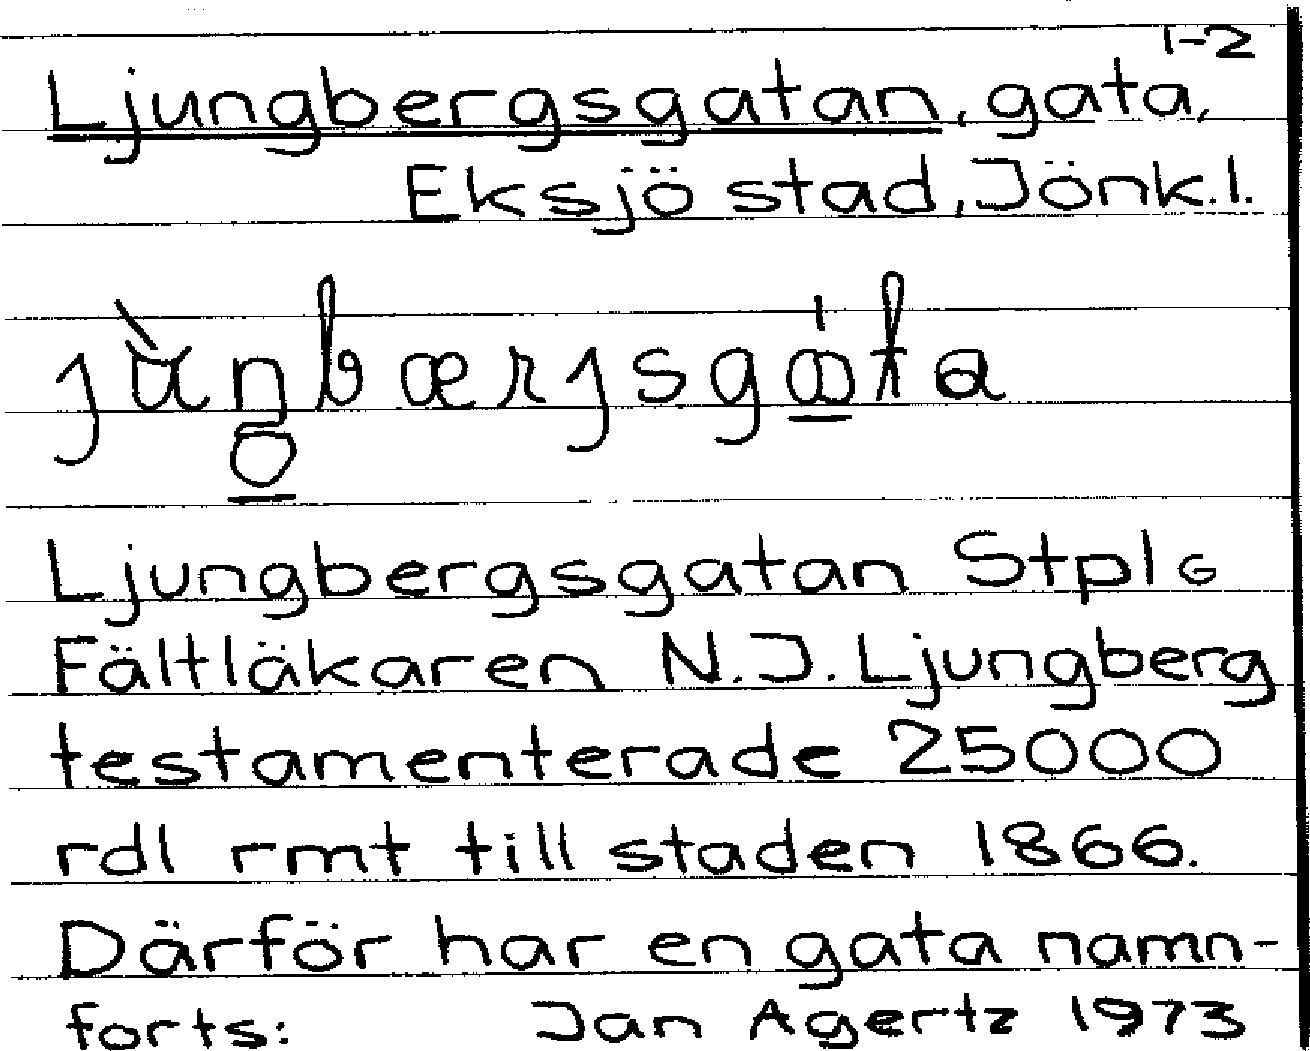 1-2
Ljungbergsgatan, gata,
Eksjö stad, Jönk.l.
Ljungbergsgatan StplG
Fältläkaren N.J. Ljungberg
testamenterade 25000
rdl rmt till staden 1866.
Därför har en gata namn-
forts: Jan Agertz 1973